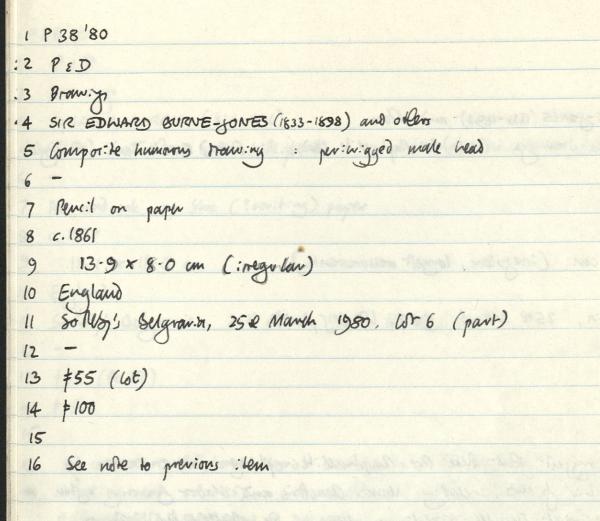 1 P 38 '80
2 P & D
3 Drawings
4 SIR EDWARD BURNE-JONES (1833-1898) and others
5 Composite humorous drawing : periwigged male head
6 -
7 Pencil on paper
8 c.1861
9 13.9 x 8.0 cm (irregular)
10 England
11 Sotheby's Belgravia, 25th March 1980. Lot 6 (part)
12 -
13 £55 (lot)
14 £100
15
16 See note to previous item